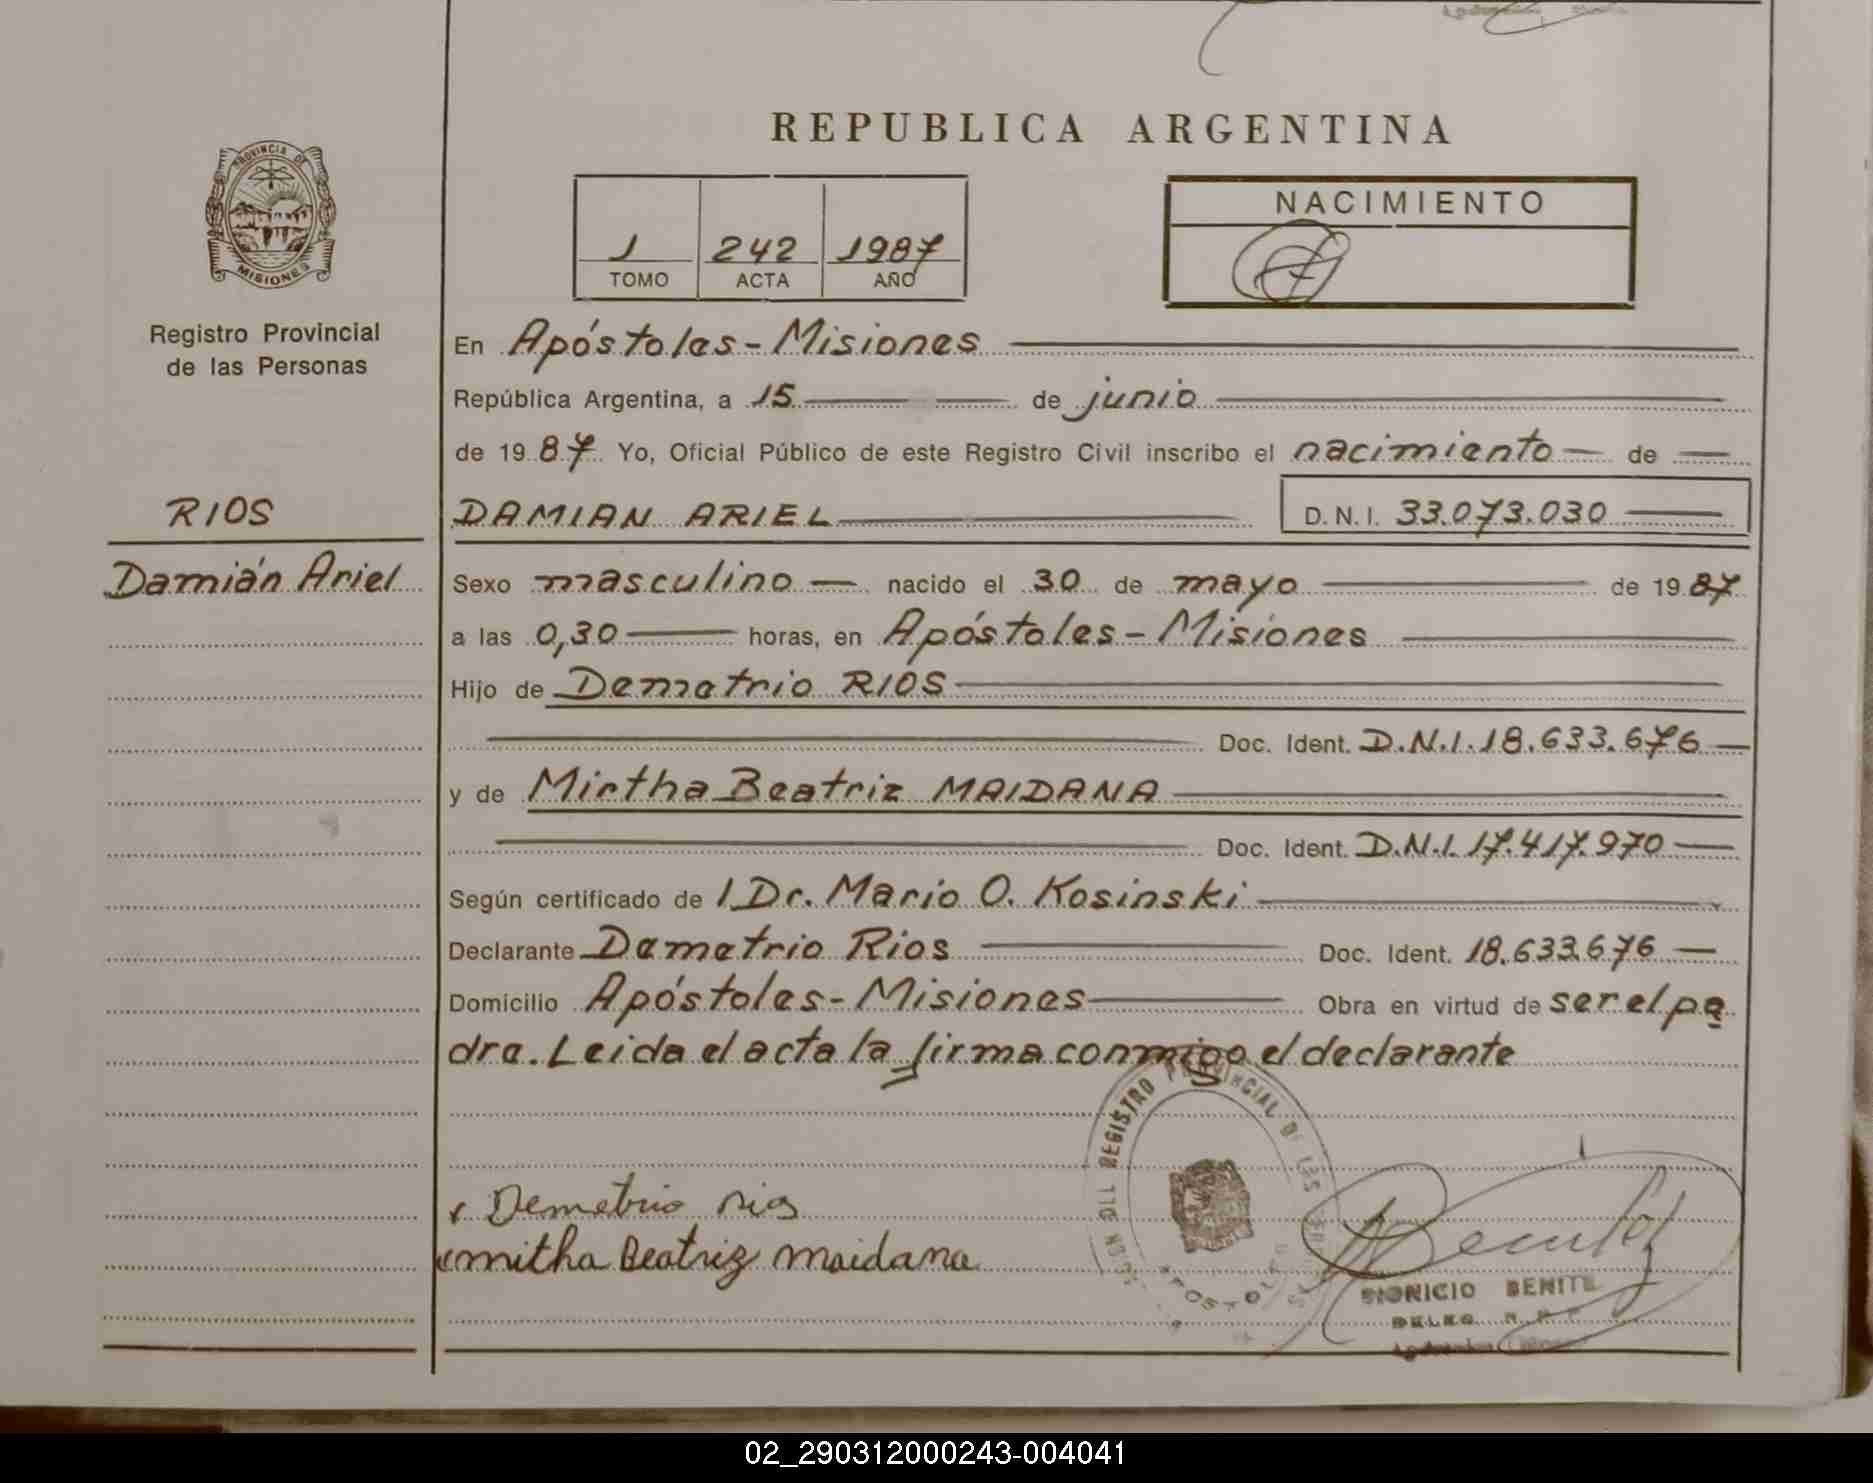 REPUBLICA ARGENTINA
PROVINCIA DE
MISIONES
Registro Provincial
de las Personas
1 242 1987
TOMO ACTA AÑO
NACIMIENTO
En Apóstoles - Misiones
República Argentina, a 15 de junio
de 19 87 Yo, Oficial Público de este Registro Civil inscribo el nacimiento de
RIOS
Damián Ariel
DAMIAN ARIEL D.N.I. 33.073.030
Sexo masculino nacido el 30 de mayo de 19 87
a las 0,30 horas, en Apóstoles - Misiones
Hijo de Demetrio RIOS
Doc. Ident. D.N.I. 18.633.676
y de Mirtha Beatriz MAIDANA
Doc. Ident. D.N.I. 17.417.970
Según certificado de l Dr. Mario O. Kosinski
Declarante Demetrio Rios Doc. Ident. 18.633.676
Domicilio Apóstoles - Misiones Obra en virtud de ser el pa
dre. Leida el acta la firma conmigo el declarante
DEL REGISTRO PROVINCIAL DE LAS
APOSTOLES
Demetrio rios
mitha Beatriz maidana
Benitez
DIONICIO BENITE
02_290312000243-004041